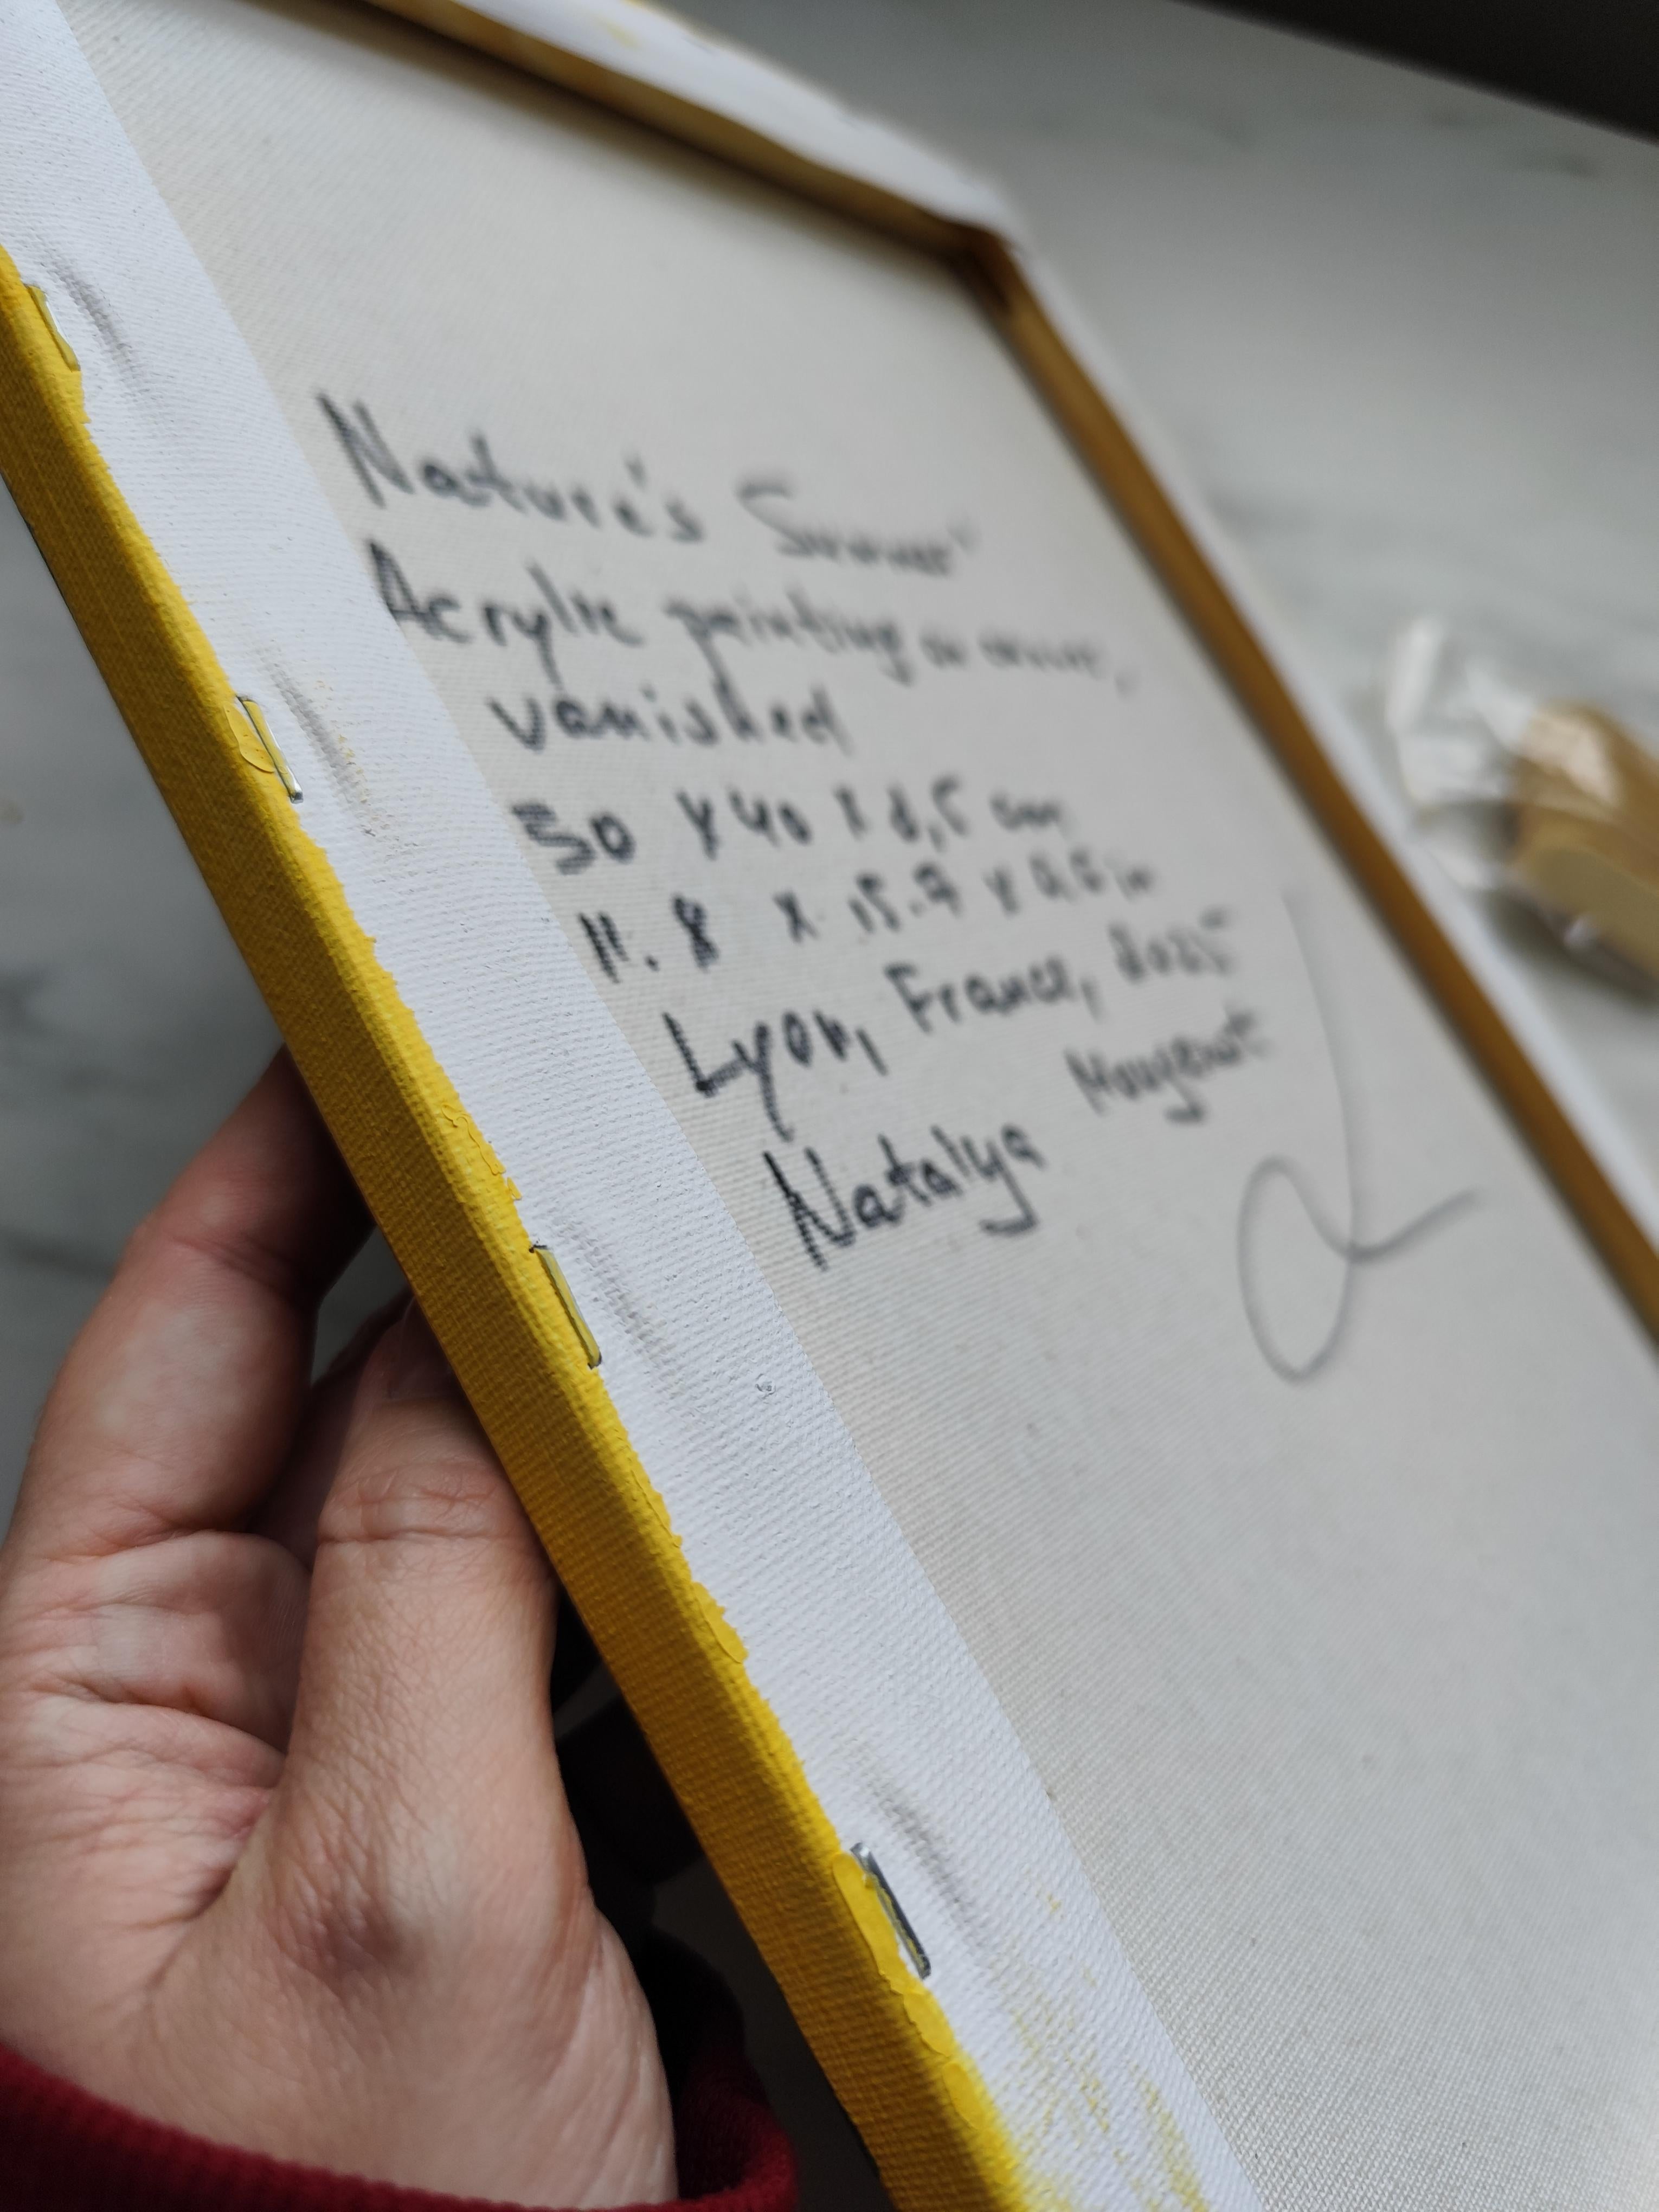 Nature's
Acrylic painting on canvas,
vanished
30 x 40 x 1,5 cm
11.8 x 15.7 x 0.5 in
Lyon, France, 2025
Natalya Mougenot